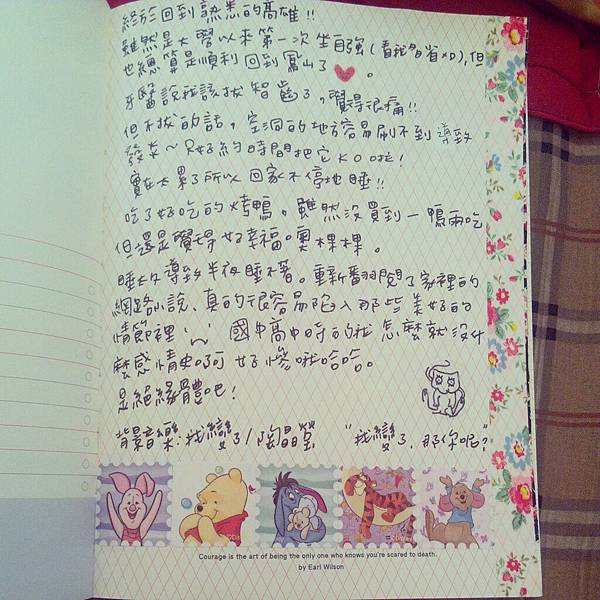 終於回到熟悉的高雄!!
雖然是大學以來第一次坐自強(看我多省XD),但
也總算是順利回到鳳山了 。
牙醫說我該拔智齒了,覺得很痛!!
但不拔的話,空洞的地方容易刷不到導致
發炎~只好約時間把它KO啦!
實在太累了所以回家不停地睡!!
吃了好吃的烤鴨。雖然沒買到一鴨兩吃
但還是覺得好幸福。噢粿粿。
睡太久導致半夜睡不著。重新翻閱了家裡的
網路小說,真的很容易陷入那些美好的
情節裡 國中高中時的我怎麼就沒什
麼感情史啊 好慘哦哈哈。
是絕緣體吧!
背景音樂:我變了/陶晶瑩 "我變了,那你呢?"
Courage is the art of being the only one who knows you're scared to death.
by Earl Wilson